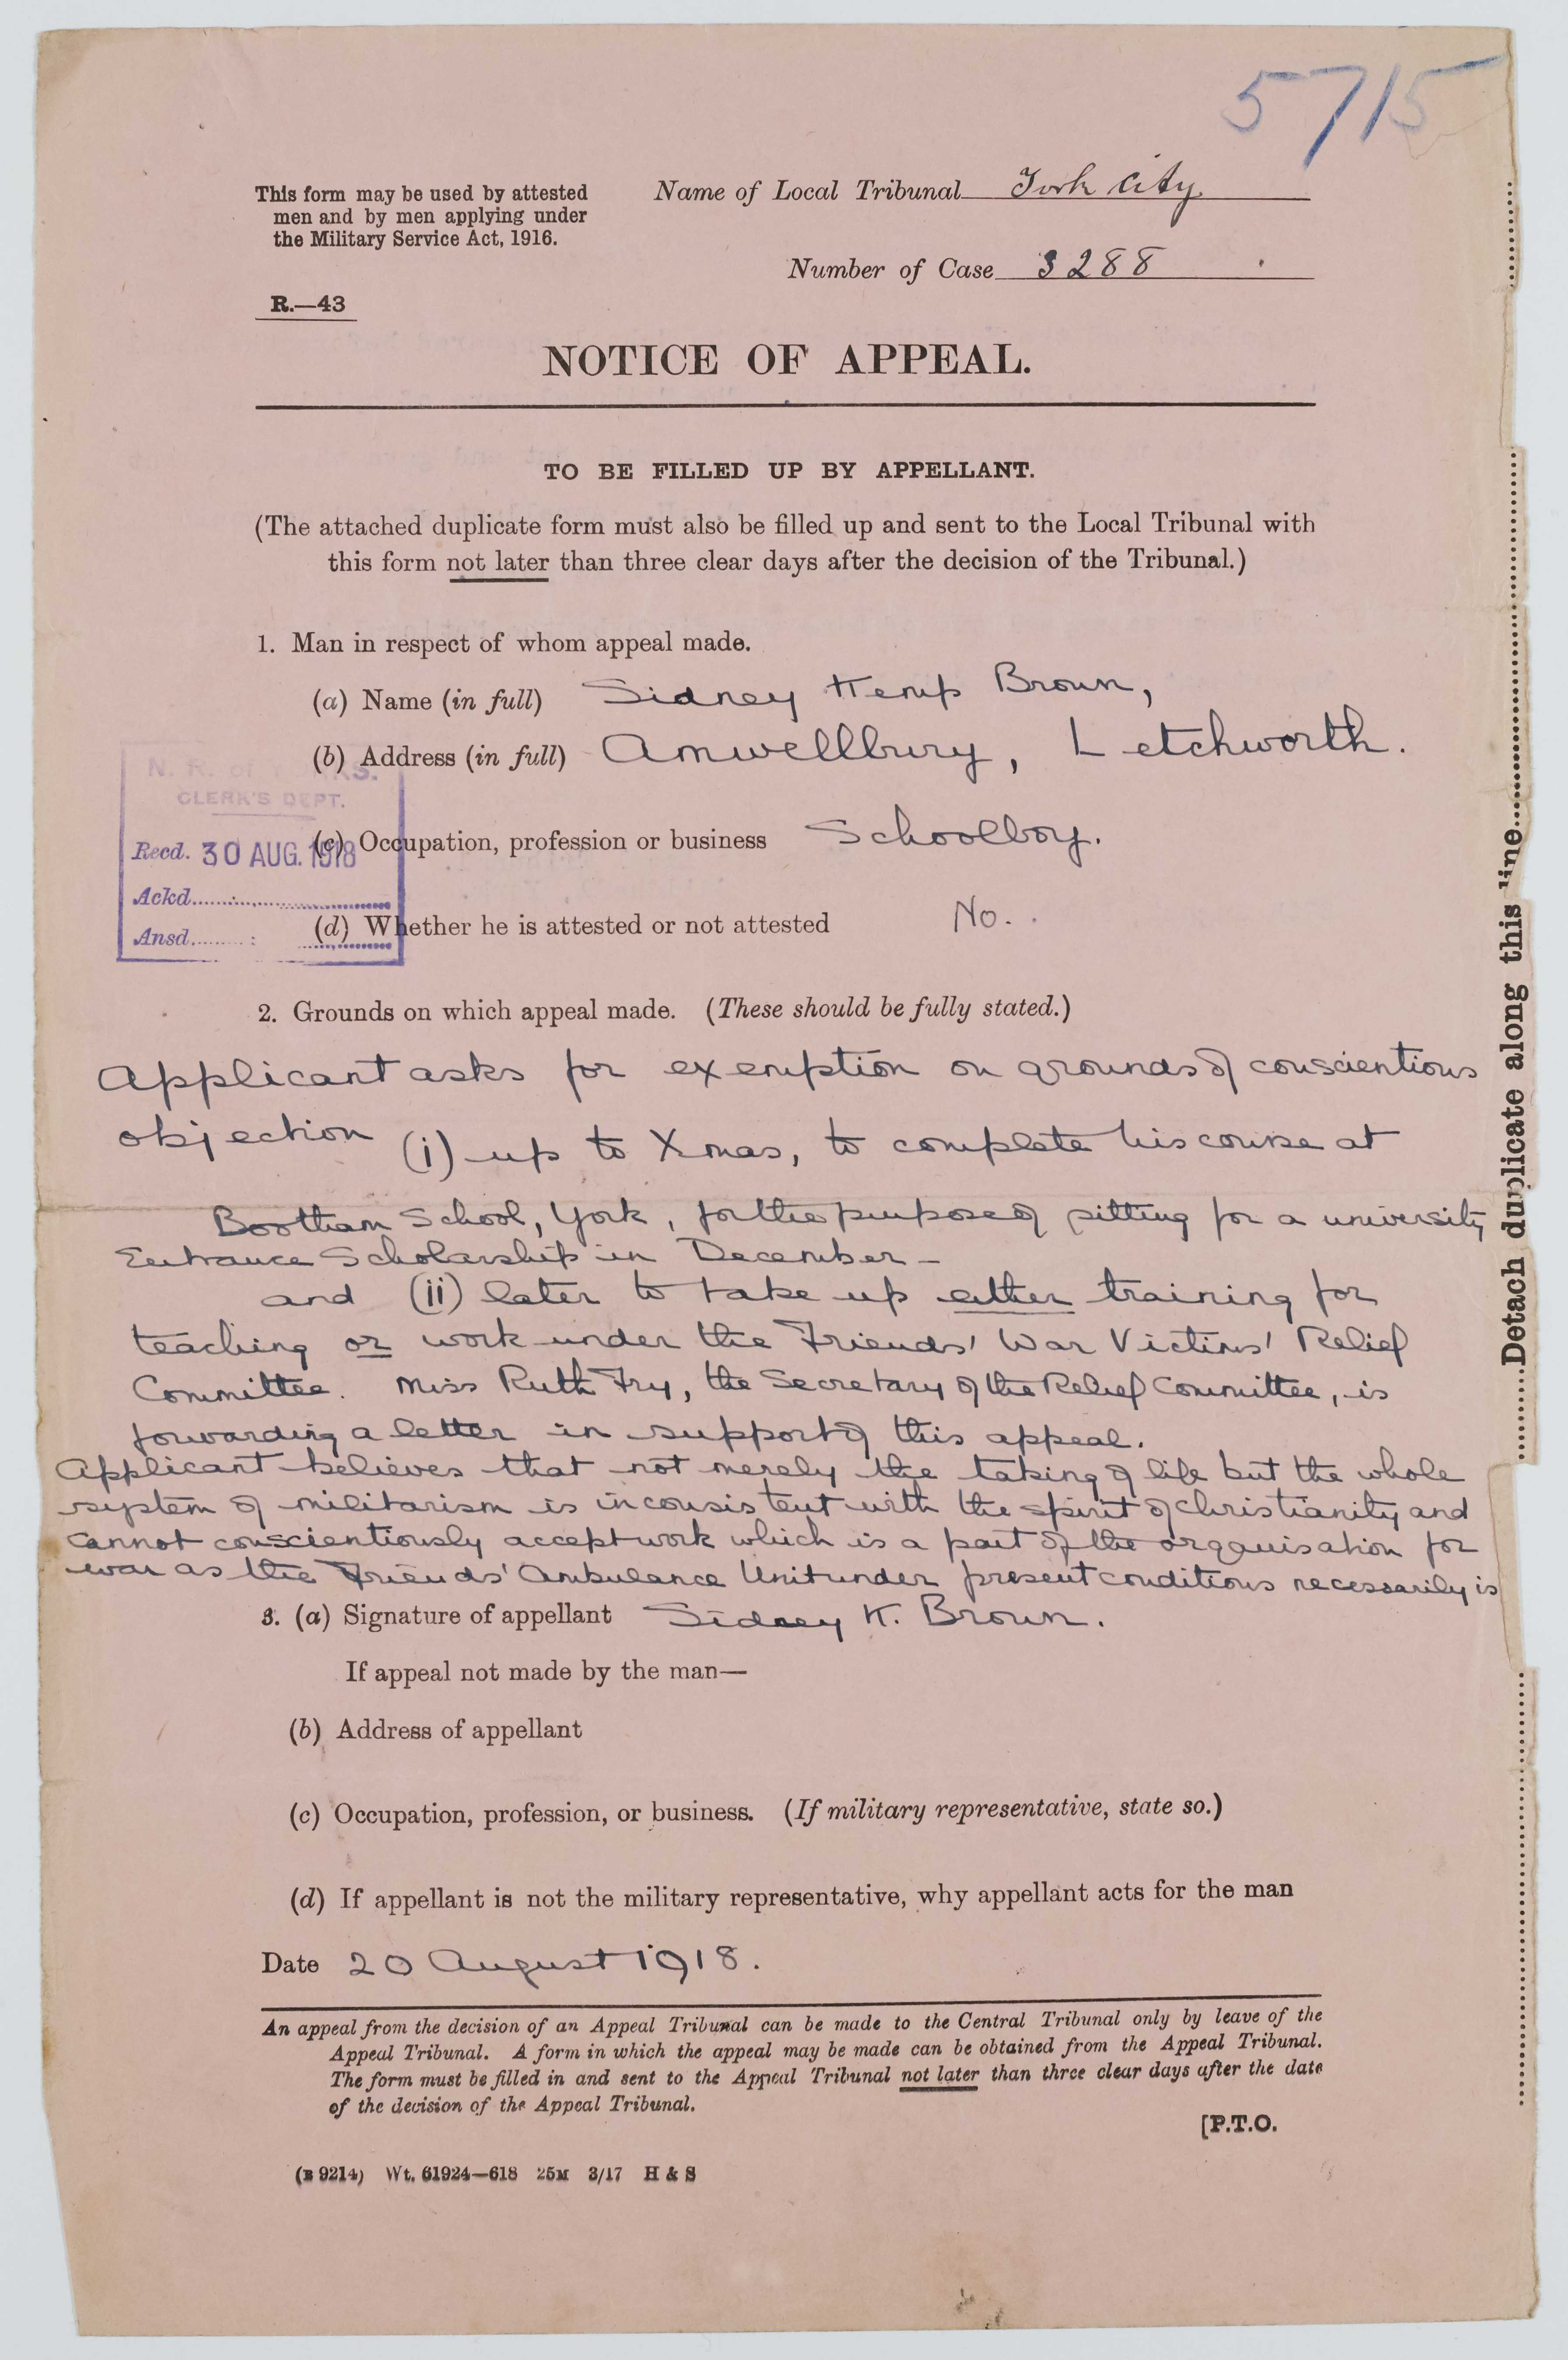 5715
This form may be used by attested
men and by men applying under
the Military Service Act, 1916.
R.—43
Name of Local Tribunal York City
Number of Case 3288
NOTICE OF APPEAL.
TO BE FILLED UP BY APPELLANT.
(The attached duplicate form must also be filled up and sent to the Local Tribunal with
this form not later than three clear days after the decision of the Tribunal.)
1. Man in respect of whom appeal made.
(a) Name (in full) Sidney Kemp Brown,
(b) Address (in full) Amwellbury, Letchworth.
N. R. of YORKS.
CLERK'S DEPT.
Recd. 30 AUG. 1918
Ackd.
Ansd.
(c) Occupation, profession or business Schoolboy.
(d) Whether he is attested or not attested No.
2. Grounds on which appeal made. (These should be fully stated.)
Applicant asks for exemption on grounds of conscientious
objection (i) up to Xmas, to complete his course at
Bootham School, York, for the purpose of sitting for a university
Entrance Scholarship in December —
and (ii) later to take up either training for
teaching or work under the Friends' War Victims' Relief
Committee. Miss Ruth Fry, the Secretary of the Relief Committee, is
forwarding a letter in support of this appeal.
Applicant believes that not merely the taking of life but the whole
system of militarism is inconsistent with the spirit of Christianity and
cannot conscientiously accept work which is a part of the organisation for
war as the Friends' Ambulance Unit under present conditions necessarily is
3. (a) Signature of appellant Sidney K. Brown.
If appeal not made by the man—
(b) Address of appellant
(c) Occupation, profession, or business. (If military representative, state so.)
(d) If appellant is not the military representative, why appellant acts for the man
Date 20 August 1918.
An appeal from the decision of an Appeal Tribunal can be made to the Central Tribunal only by leave of the
Appeal Tribunal. A form in which the appeal may be made can be obtained from the Appeal Tribunal.
The form must be filled in and sent to the Appeal Tribunal not later than three clear days after the date
of the decision of the Appeal Tribunal.
[P.T.O.
(B 9214) Wt. 61924—618 25M 3/17 H & S
Detach duplicate along this line